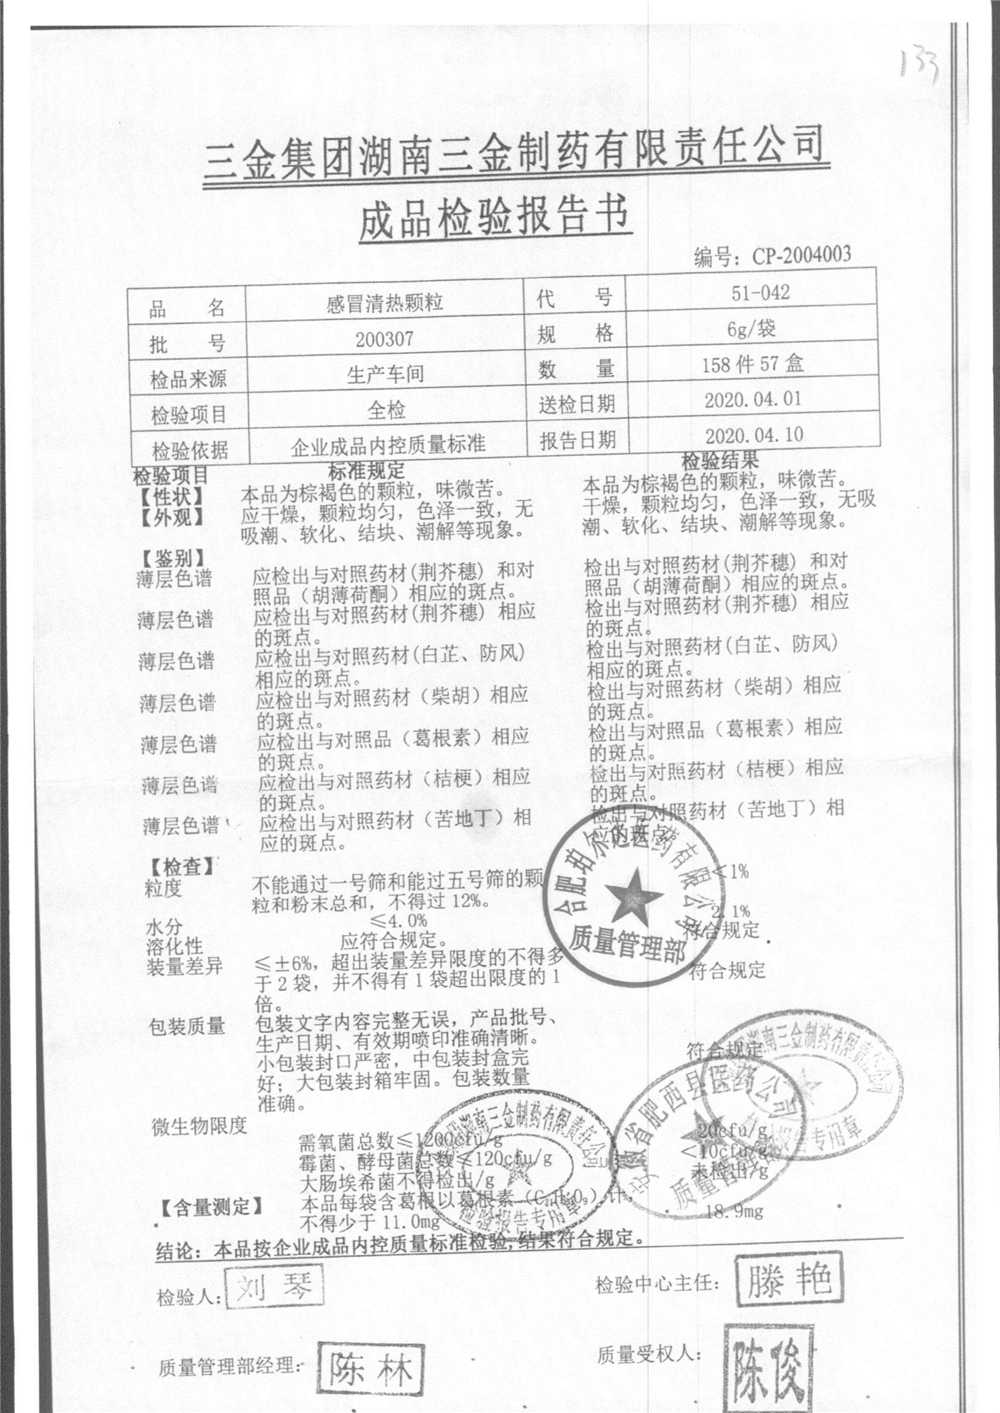 133
三金集团湖南三金制药有限责任公司
成品检验报告书
编号：CP-2004003
品 名 感冒清热颗粒 代 号 51-042
批 号 200307 规 格 6g/袋
检品来源 生产车间 数 量 158件57盒
检验项目 全检 送检日期 2020.04.01
检验依据 企业成品内控质量标准 报告日期 2020.04.10
检验项目 标准规定 检验结果
【性状】 本品为棕褐色的颗粒，味微苦。 本品为棕褐色的颗粒，味微苦。
【外观】 应干燥，颗粒均匀，色泽一致，无 干燥，颗粒均匀，色泽一致，无吸
吸潮、软化、结块、潮解等现象。 潮、软化、结块、潮解等现象。
【鉴别】
薄层色谱 应检出与对照药材(荆芥穗) 和对 检出与对照药材(荆芥穗) 和对
照品（胡薄荷酮）相应的斑点。 照品（胡薄荷酮）相应的斑点。
薄层色谱 应检出与对照药材(荆芥穗) 相应 检出与对照药材(荆芥穗) 相应
的斑点。 的斑点。
薄层色谱 应检出与对照药材(白芷、防风) 检出与对照药材(白芷、防风)
相应的斑点。 相应的斑点。
薄层色谱 应检出与对照药材（柴胡）相应 检出与对照药材（柴胡）相应
的斑点。 的斑点。
薄层色谱 应检出与对照品（葛根素）相应 检出与对照品（葛根素）相应
的斑点。 的斑点。
薄层色谱 应检出与对照药材（桔梗）相应 检出与对照药材（桔梗）相应
的斑点。 的斑点。
薄层色谱 应检出与对照药材（苦地丁）相 检出与对照药材（苦地丁）相
应的斑点。 应的斑点
【检查】
粒度 不能通过一号筛和能过五号筛的颗 <1%
粒和粉末总和，不得过12%。
水分 ≤4.0% 2.1%
溶化性 应符合规定。 符合规定
装量差异 ≤±6%，超出装量差异限度的不得多 符合规定
于2袋，并不得有1袋超出限度的1
倍。
包装质量 包装文字内容完整无误，产品批号、 符合规定
生产日期、有效期喷印准确清晰。
小包装封口严密，中包装封盒完
好；大包装封箱牢固。包装数量
准确。
微生物限度
需氧菌总数≤1200cfu/g 20cfu/g
霉菌、酵母菌总数≤120cfu/g <10cfu/g
大肠埃希菌不得检出/g 未检出/g
【含量测定】 本品每袋含葛根以葛根素 计 18.9mg
不得少于11.0mg
结论：本品按企业成品内控质量标准检验,结果符合规定。
检验人： 刘琴 检验中心主任： 滕艳
质量管理部经理： 陈林 质量受权人： 陈俊
质量管理部
安徽省肥西县医药公司
湖南三金制药有限责任公司
检验报告专用章